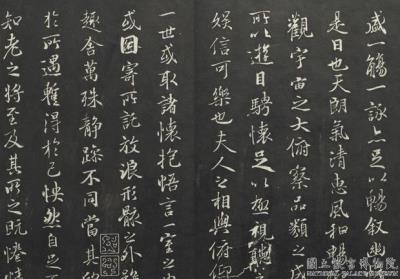 盛一觴一詠亦足以暢叙幽
是日也天朗氣清惠風和暢
觀宇宙之大俯察品類之
所以遊目騁懷足以極視聽
娛信可樂也夫人之相與俯仰
一世或取諸懷抱悟言一室之內
或因寄所託放浪形骸之外雖
趣舍萬殊靜躁不同當其欣
於所遇蹔得於己怏然自足不
知老之將至及其所之既惓情
國立故宮博物院